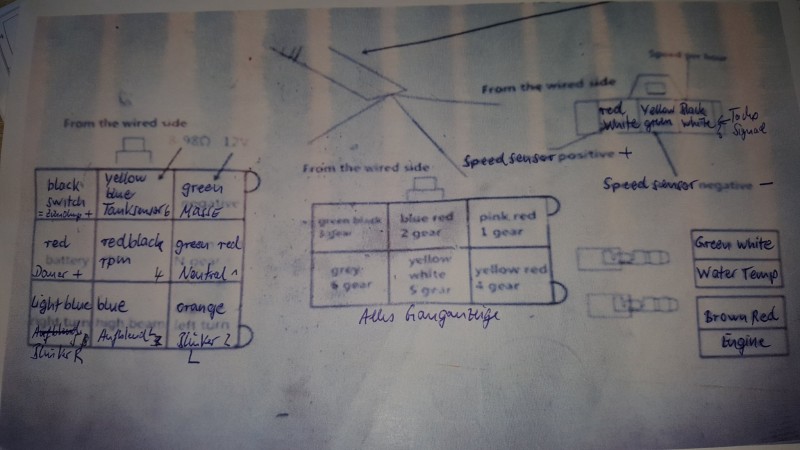 Speed per hour
From the wired side
red
white
Yellow
green
Black
white
Signal
Speed sensor positive +
Speed sensor negative -
From the wired side
98Ω 12V
black
switch
yellow
blue
green
negative
Masse
red
battery
Dauer +
red black
rpm
4
green red
Neutral
light blue
right turn
Blinker R
blue
high beam
orange
left turn
Blinker L
From the wired side
green black
3 gear
blue red
2 gear
pink red
1 gear
grey
6 gear
yellow
white
5 gear
yellow red
4 gear
Alles Ganganzeige
Green white
Water Temp
Brown Red
Engine